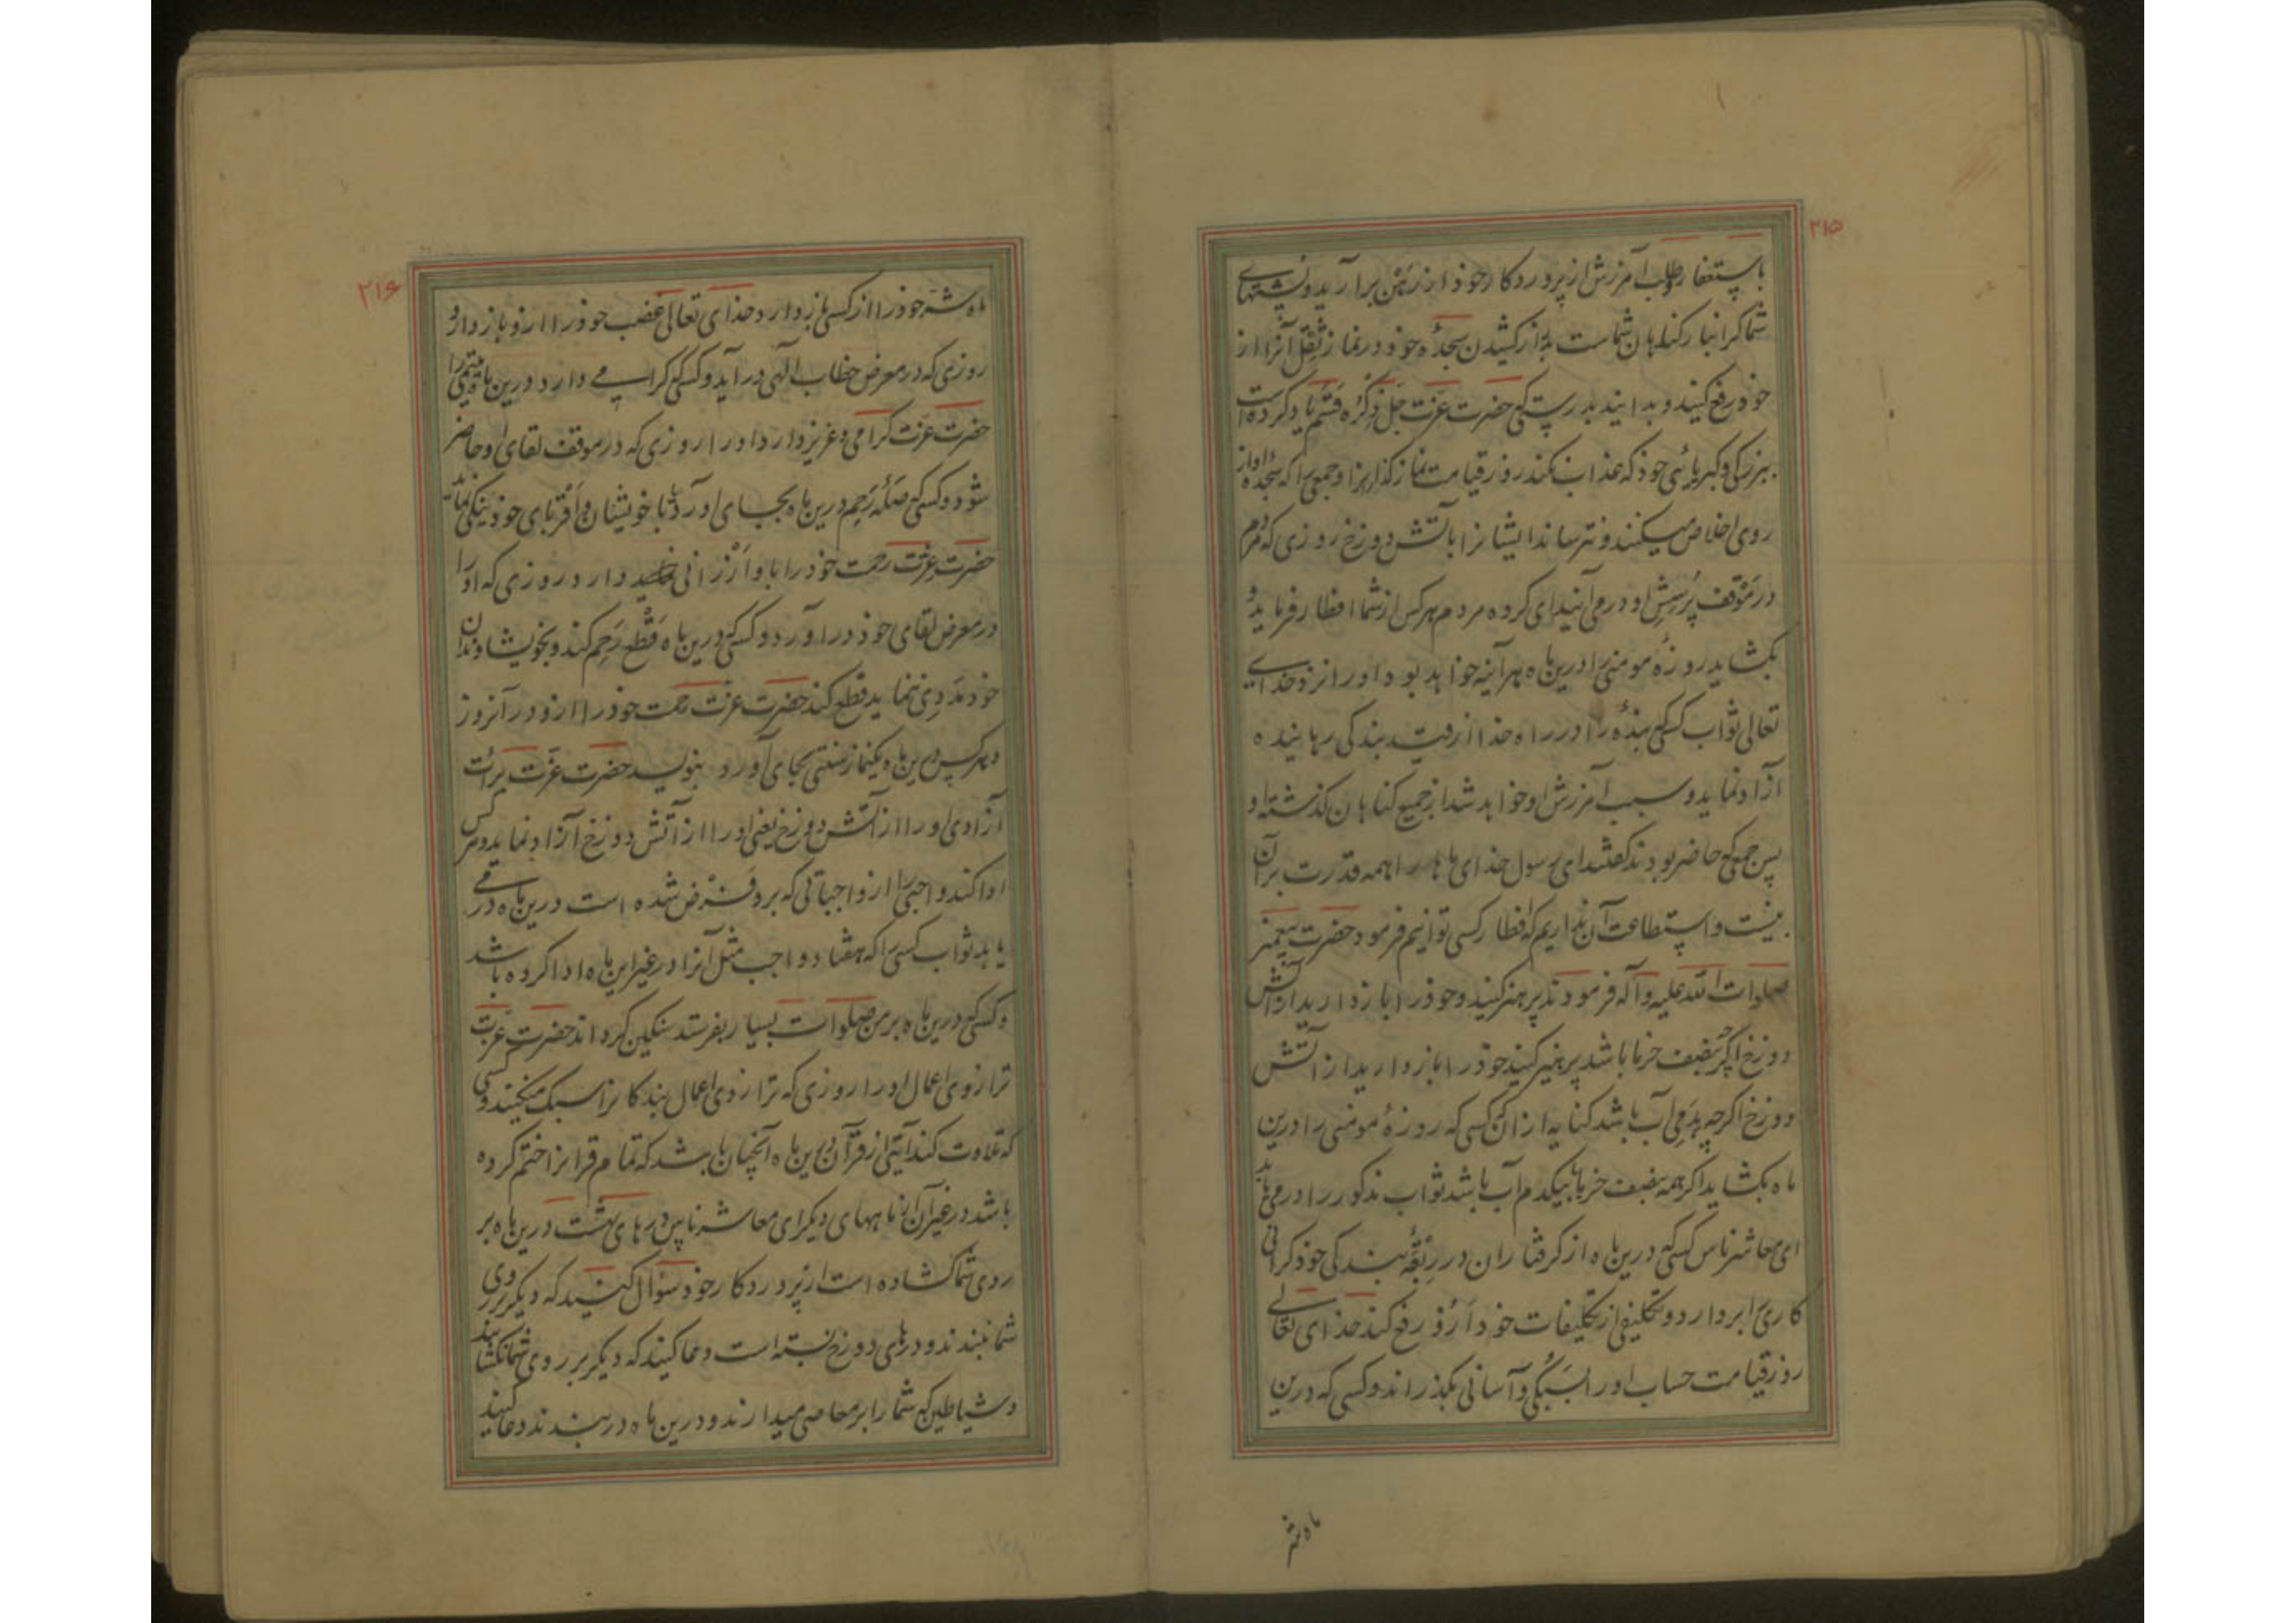 ۲۱۵
باستغفار و طلب آمرزش از پروردکار خود از رهن برارید و پشتهای
شما کرانبار کناهان شماست بدراز کشیدن سجدهٔ خود در نماز ثقل آنرا از
خود رفع کنید و بدانید بدرستی که حضرت عزت جل ذکره قسم یاد کرده است
ببزرکی و کبریائی خود که عذاب نکند روز قیامت نماز کذارانرا و جمعی را که سجده او از
روی اخلاص میکنند و نترساند ایشانرا باتش دوزخ روزی که مردم
در موقف پرسش او در می آیند ای کروه مردم هر کس از شما افطار فرماید و
بکشاید روزهٔ مومنی را درین ماه هر آینه خواهد بود او را نزد خدای
تعالی ثواب کسی که بندهٔ را در راه خدا از رقیت بندکی رهانیده
آزاد نماید و سبب آمرزش او خواهد شد از جمیع کناهان کذشته او
پس جمعی که حاضر بودند کفتند ای رسول خدای ما را همه قدرت بر آن
نیست و استطاعت آن نداریم که افطار کسی توانیم فرمود حضرت پیغمبر
صلوات الله علیه و آله فرمودند پرهیز کنید و خود را باز دارید از آتش
دوزخ اکرچه بنصف خرما باشد پرهیز کنید خود را باز دارید از آتش
دوزخ اکرچه بدمی آب باشد کنایه از آن کسی که روزهٔ مومنی را درین
ماه بکشاید اکر همه بنصف خرما بیکدم آب باشد ثواب مذکور را در می یابد
ای معاشر ناس کسی که درین ماه از کرفتاران در ربقهٔ بندکی خود کرانی
کاری را بردارد و تکلیفی از تکلیفات خود ازو رفع کند خدای تعالی
روز قیامت حساب او را بسبکی و آسانی بکذراند و کسی که درین
ماه شر
۲۱۶
ماه شر خود را از کسی باز دارد خدای تعالی غضب خود را ازو باز دارد
روزی که در معرض خطاب الهی در آید و کسی که کرامی دارد درین ماه یتیمی را
حضرت عزت کرامی و عزیز دارد او را روزی که در موقف لقای او حاضر
شود و کسی که صلهٔ رحم درین ماه بجای آورد و با خویشان و اقربای خود نیکی نماید
حضرت عزت رحمت خود را باو ارزانی دارد روزی که او را
در معرض لقای خود در آورد و کسی که درین ماه قطع رحم کند و بخویشاوندان
خود بدی نماید قطع کند حضرت عزت رحمت خود را ازو در آنروز
و هر کس درین ماه یکنماز سنتی بجای آورد بنویسد حضرت عزت برات
آزادی او را از آتش دوزخ یعنی او را از آتش دوزخ آزاد نماید و هر کس
ادا کند واجبی را از واجباتی که برو فرض شده است درین ماه در می
یابد ثواب کسی را که هفتاد واجب مثل آنرا در غیر این ماه ادا کرده باشد
و کسی که درین ماه بر من صلوات بسیار بفرستد سنکین کرداند حضرت عزت
ترازوی اعمال او را روزی که ترازوی اعمال بندکانرا سبک میکنند و کسی
که تلاوت کند آیتی از قرآن درین ماه آنچنان باشد که تمام قرانرا ختم کرده
باشد در غیر آن از ماههای دیکر ای معاشر ناس درهای بهشت درین ماه بر
روی شما کشاده است از پروردکار خود سوال کنید که دیکر بر روی
شما نبندند و درهای دوزخ بسته است دعا کنید که دیکر بر روی شما نکشایند
و شیاطین که شما را بر معاصی میدارند و درین ماه در بندند دعا کنید